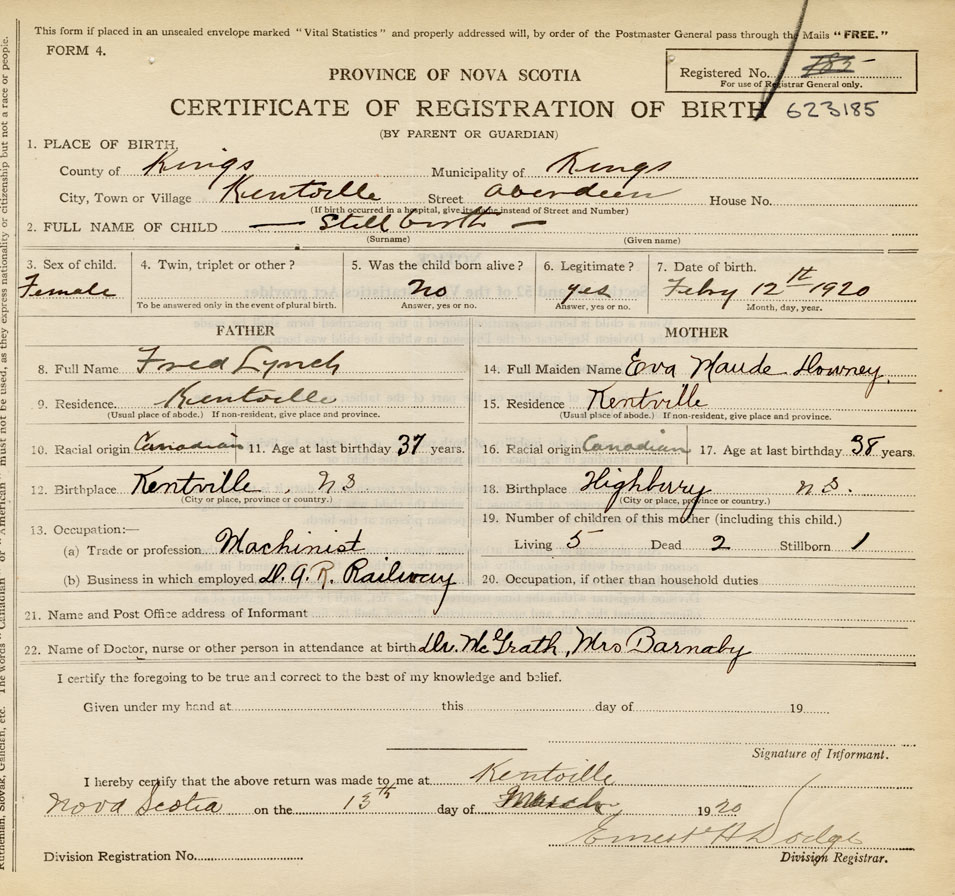 This form if placed in an unsealed envelope marked "Vital Statistics" and properly addressed will, by order of the Postmaster General pass through the Mails "FREE."
FORM 4.
Registered No. 185
For use of Registrar General only.
PROVINCE OF NOVA SCOTIA
CERTIFICATE OF REGISTRATION OF BIRTH 623185
(BY PARENT OR GUARDIAN)
1. PLACE OF BIRTH,
County of Kings Municipality of Kings
City, Town or Village Kentville Street Aberdeen House No.
(If birth occurred in a hospital, give its name instead of Street and Number)
2. FULL NAME OF CHILD — Still birth —
(Surname) (Given name)
3. Sex of child. 4. Twin, triplet or other? 5. Was the child born alive? 6. Legitimate? 7. Date of birth.
Female no yes Feby 12th 1920
To be answered only in the event of plural birth. Answer, yes or no. Answer, yes or no. Month, day, year.
FATHER MOTHER
8. Full Name Fred Lynch 14. Full Maiden Name Eva Maude Downey.
9. Residence. Kentville 15. Residence Kentville
(Usual place of abode.) If non-resident, give place and province. (Usual place of abode.) If non-resident, give place and province.
10. Racial origin Canadian 11. Age at last birthday 37 years. 16. Racial origin Canadian 17. Age at last birthday 38 years.
12. Birthplace Kentville, N.S. 18. Birthplace Highbury N.S.
(City or place, province or country.) (City or place, province or country.)
13. Occupation:— 19. Number of children of this mother (including this child.)
(a) Trade or profession Machinist Living 5 Dead 2 Stillborn 1
(b) Business in which employed D.A.R. Railway 20. Occupation, if other than household duties
21. Name and Post Office address of Informant
22. Name of Doctor, nurse or other person in attendance at birth Dr. McGrath, Mrs Barnaby
I certify the foregoing to be true and correct to the best of my knowledge and belief.
Given under my hand at this day of 19
Signature of Informant.
I hereby certify that the above return was made to me at Kentville
Nova Scotia on the 13th day of March 1920
Ernest H Dodge
Division Registration No. Division Registrar.